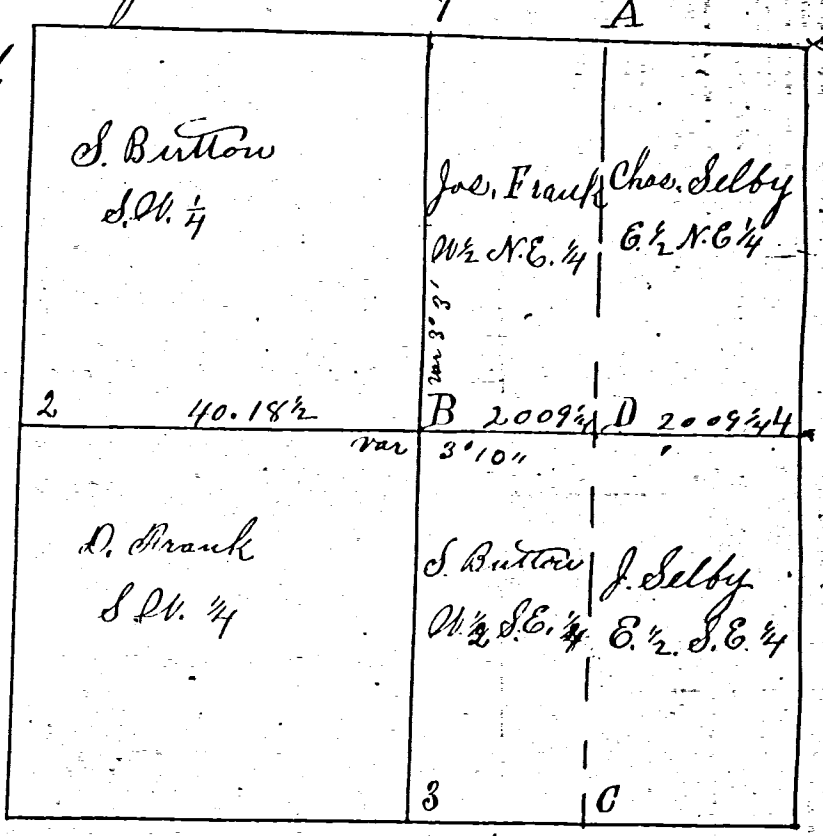 1
A
S. Button
S.W. 1/4
Jos. Frank
W 1/2 N.E. 1/4
Chas. Selby
E. 1/2 N.E 1/4
var 3° 3'
2
40.18 1/2
B
2009 1/4
D
2009 1/4
4
var 3° 10"
D. Frank
S.W. 1/4
S. Button
W. 1/2 S.E. 1/4
J. Selby
E. 1/2. S.E. 1/4
3
C